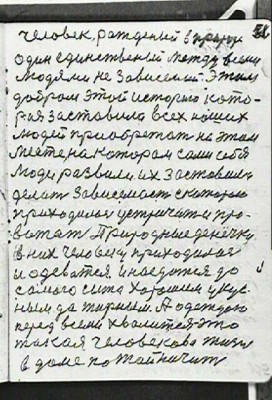 человек, рожденый в прир
один единственый между всеми
людями не зависемай. Этим
добром этой истории кото-
рая заставила всех наших
людей приобретать на этом
месте, на котором сами себя
люди развили их заставило
делать зависимость с которою
приходилося устричат и про-
вожат. Природные денёчку
в них человеку приходилося
и одеватся и наедатся до
самого сыта хорошим и вкус-
ным да жирным. А одеждою
перед всеми хвалится это
такая человекова жизнь
в доме по